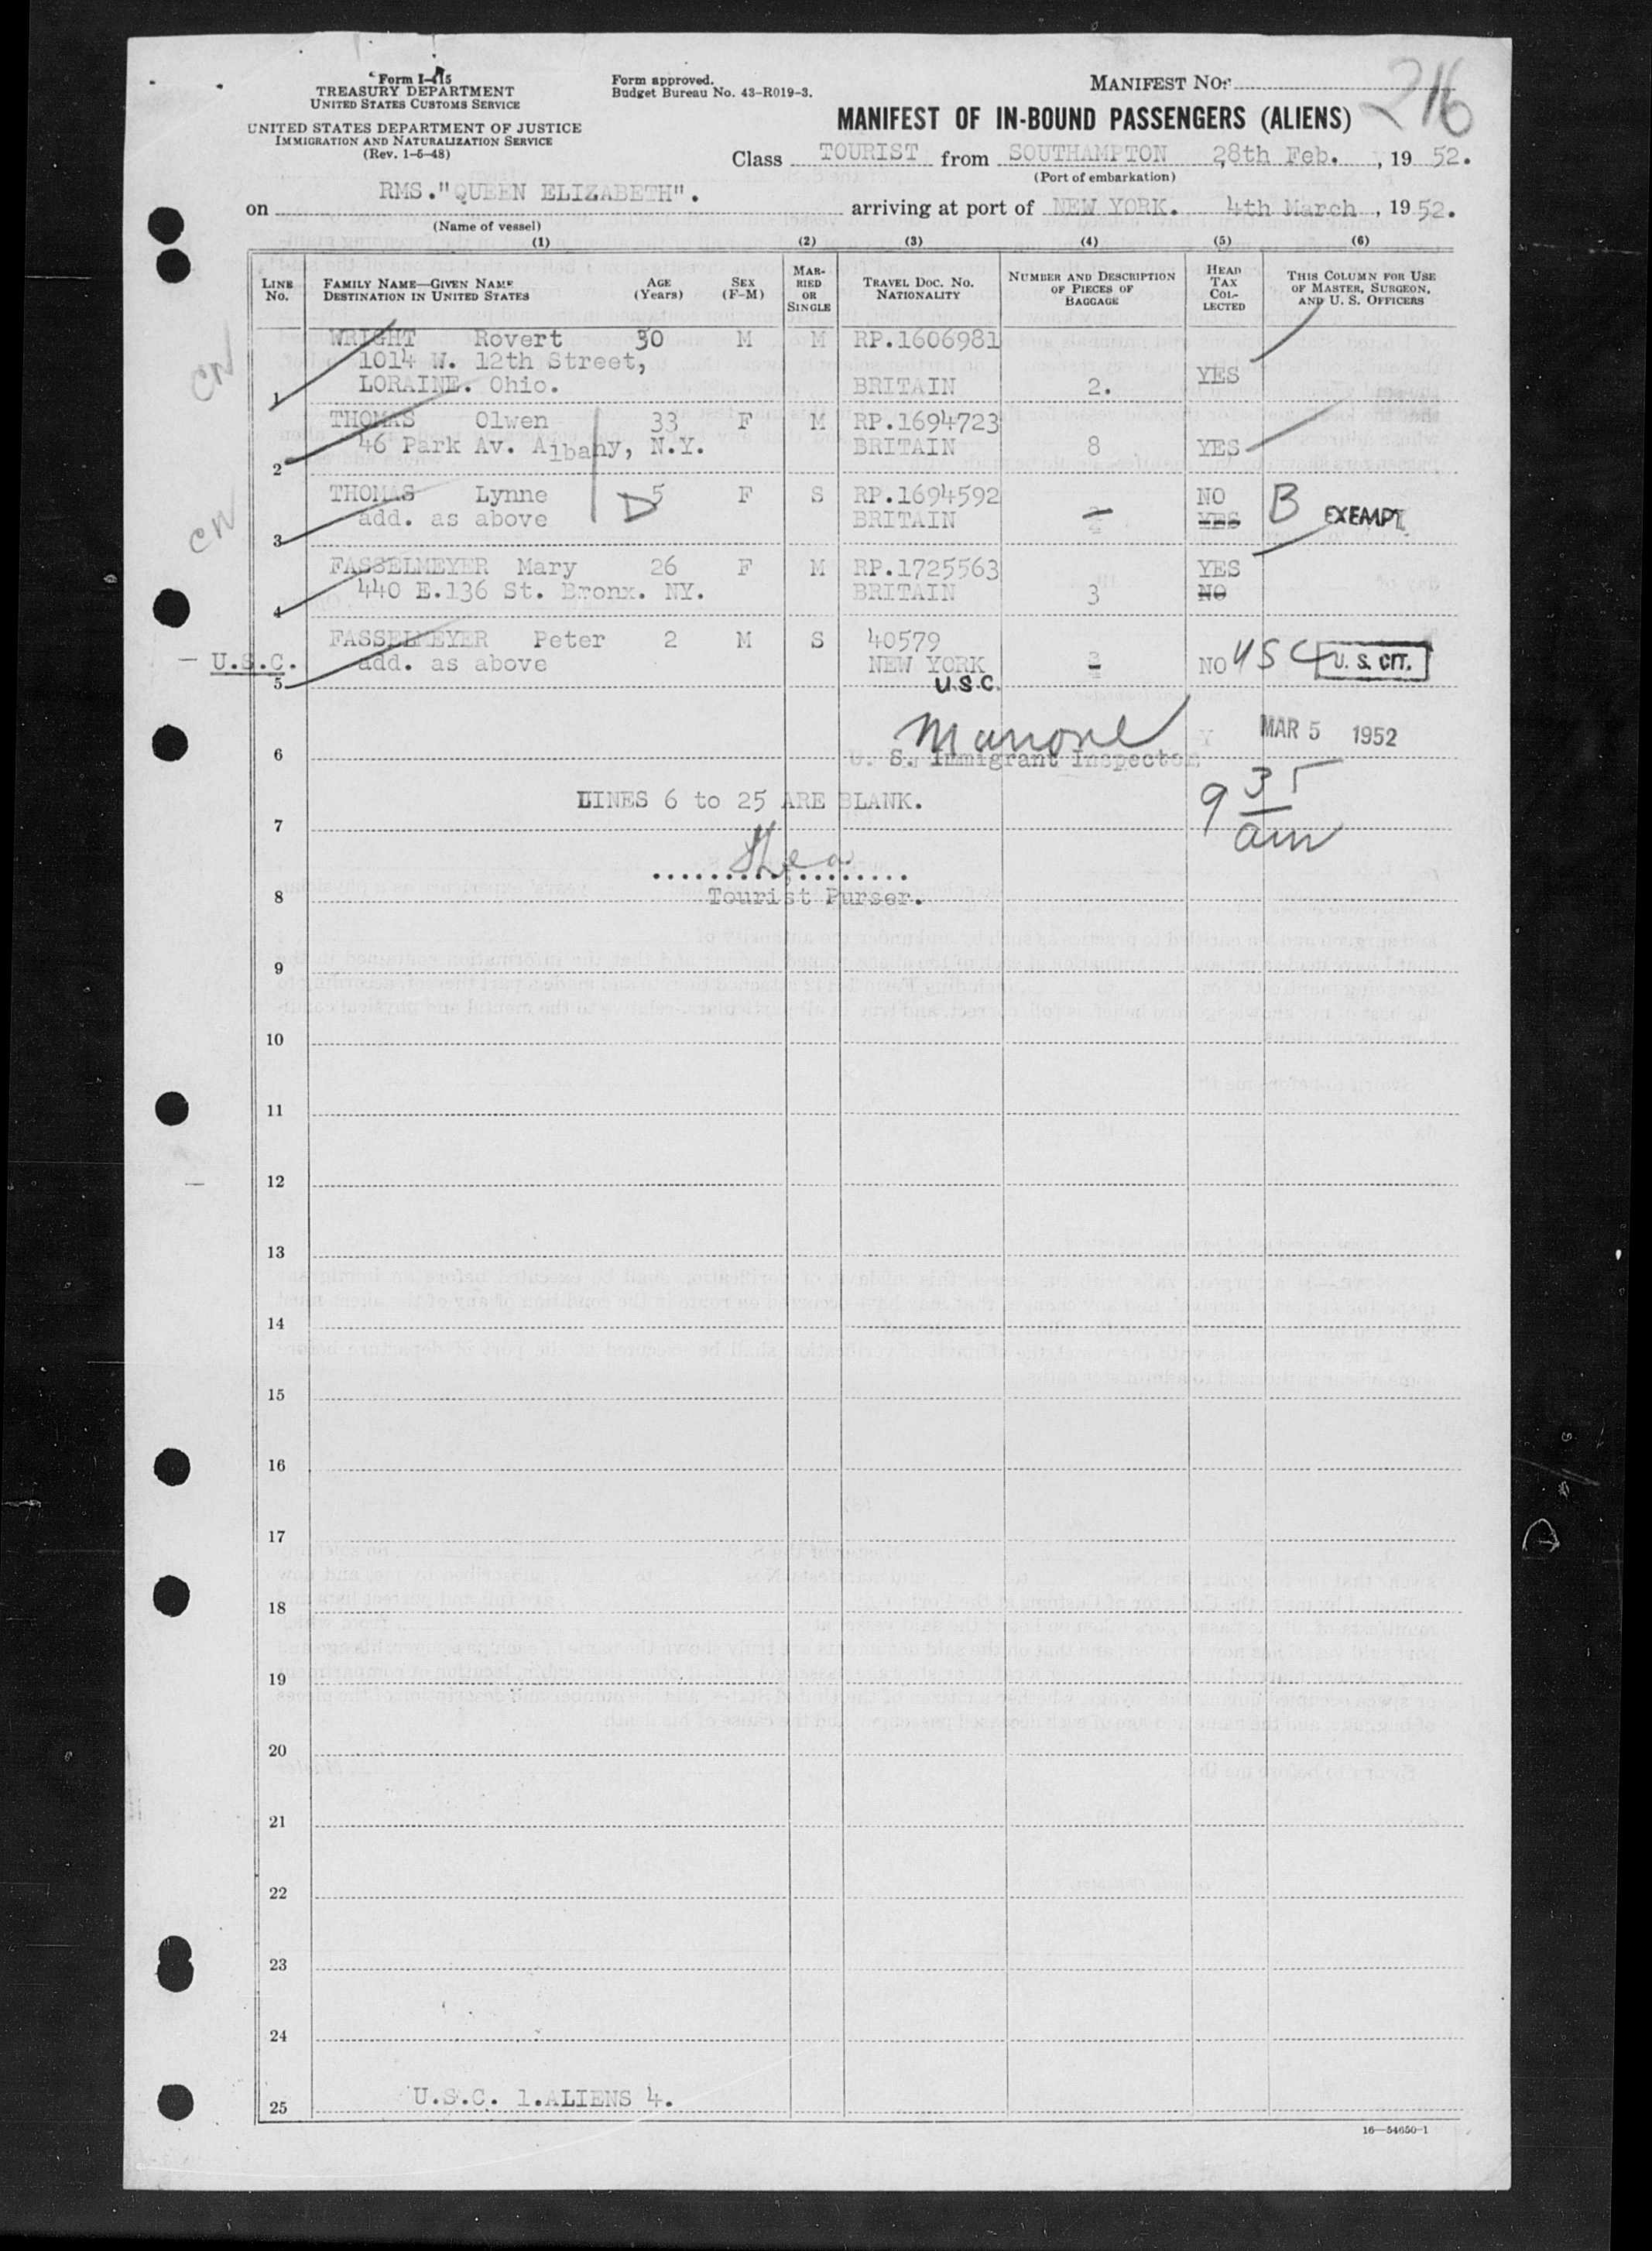 Form I-415
TREASURY DEPARTMENT
UNITED STATES CUSTOMS SERVICE
UNITED STATES DEPARTMENT OF JUSTICE
IMMIGRATION AND NATURALIZATION SERVICE
(Rev. 1-5-48)
Form approved.
Budget Bureau No. 43-R019-3.
MANIFEST NO.
216
MANIFEST OF IN-BOUND PASSENGERS (ALIENS)
Class TOURIST from SOUTHAMPTON 28th Feb. , 19 52.
(Port of embarkation)
on RMS."QUEEN ELIZABETH". arriving at port of NEW YORK. 4th March , 19 52.
(Name of vessel)
(1) (2) (3) (4) (5) (6)
LINE NO. FAMILY NAME—GIVEN NAME DESTINATION IN UNITED STATES AGE (Years) SEX (F-M) MARRIED OR SINGLE TRAVEL DOC. NO. NATIONALITY NUMBER AND DESCRIPTION OF PIECES OF BAGGAGE HEAD TAX COLLECTED THIS COLUMN FOR USE OF MASTER, SURGEON, AND U. S. OFFICERS
WRIGHT Rovert 30 M M RP.1606981
1014 W. 12th Street,
CN
1 LORAINE. Ohio. BRITAIN 2. YES
THOMAS Olwen 33 F M RP.1694723
2 46 Park Av. Albany, N.Y. BRITAIN 8 YES
THOMAS Lynne D 5 F S RP.1694592 NO B EXEMPT
CN
3 add. as above BRITAIN YES
FASSELMEYER Mary 26 F M RP.1725563 YES
4 440 E.136 St. Bronx. NY. BRITAIN 3 NO
FASSELMEYER Peter 2 M S 40579
— U.S.C. 5 add. as above NEW YORK NO USC U. S. CIT.
U.S.C.
Manone MAR 5 1952
6 U. S. Immigrant Inspector
LINES 6 to 25 ARE BLANK.
9 35 am
7
8 Tourist Purser.
9
10
11
12
13
14
15
16
17
18
19
20
21
22
23
24
25 U.S.C. 1.ALIENS 4.
16—54650-1